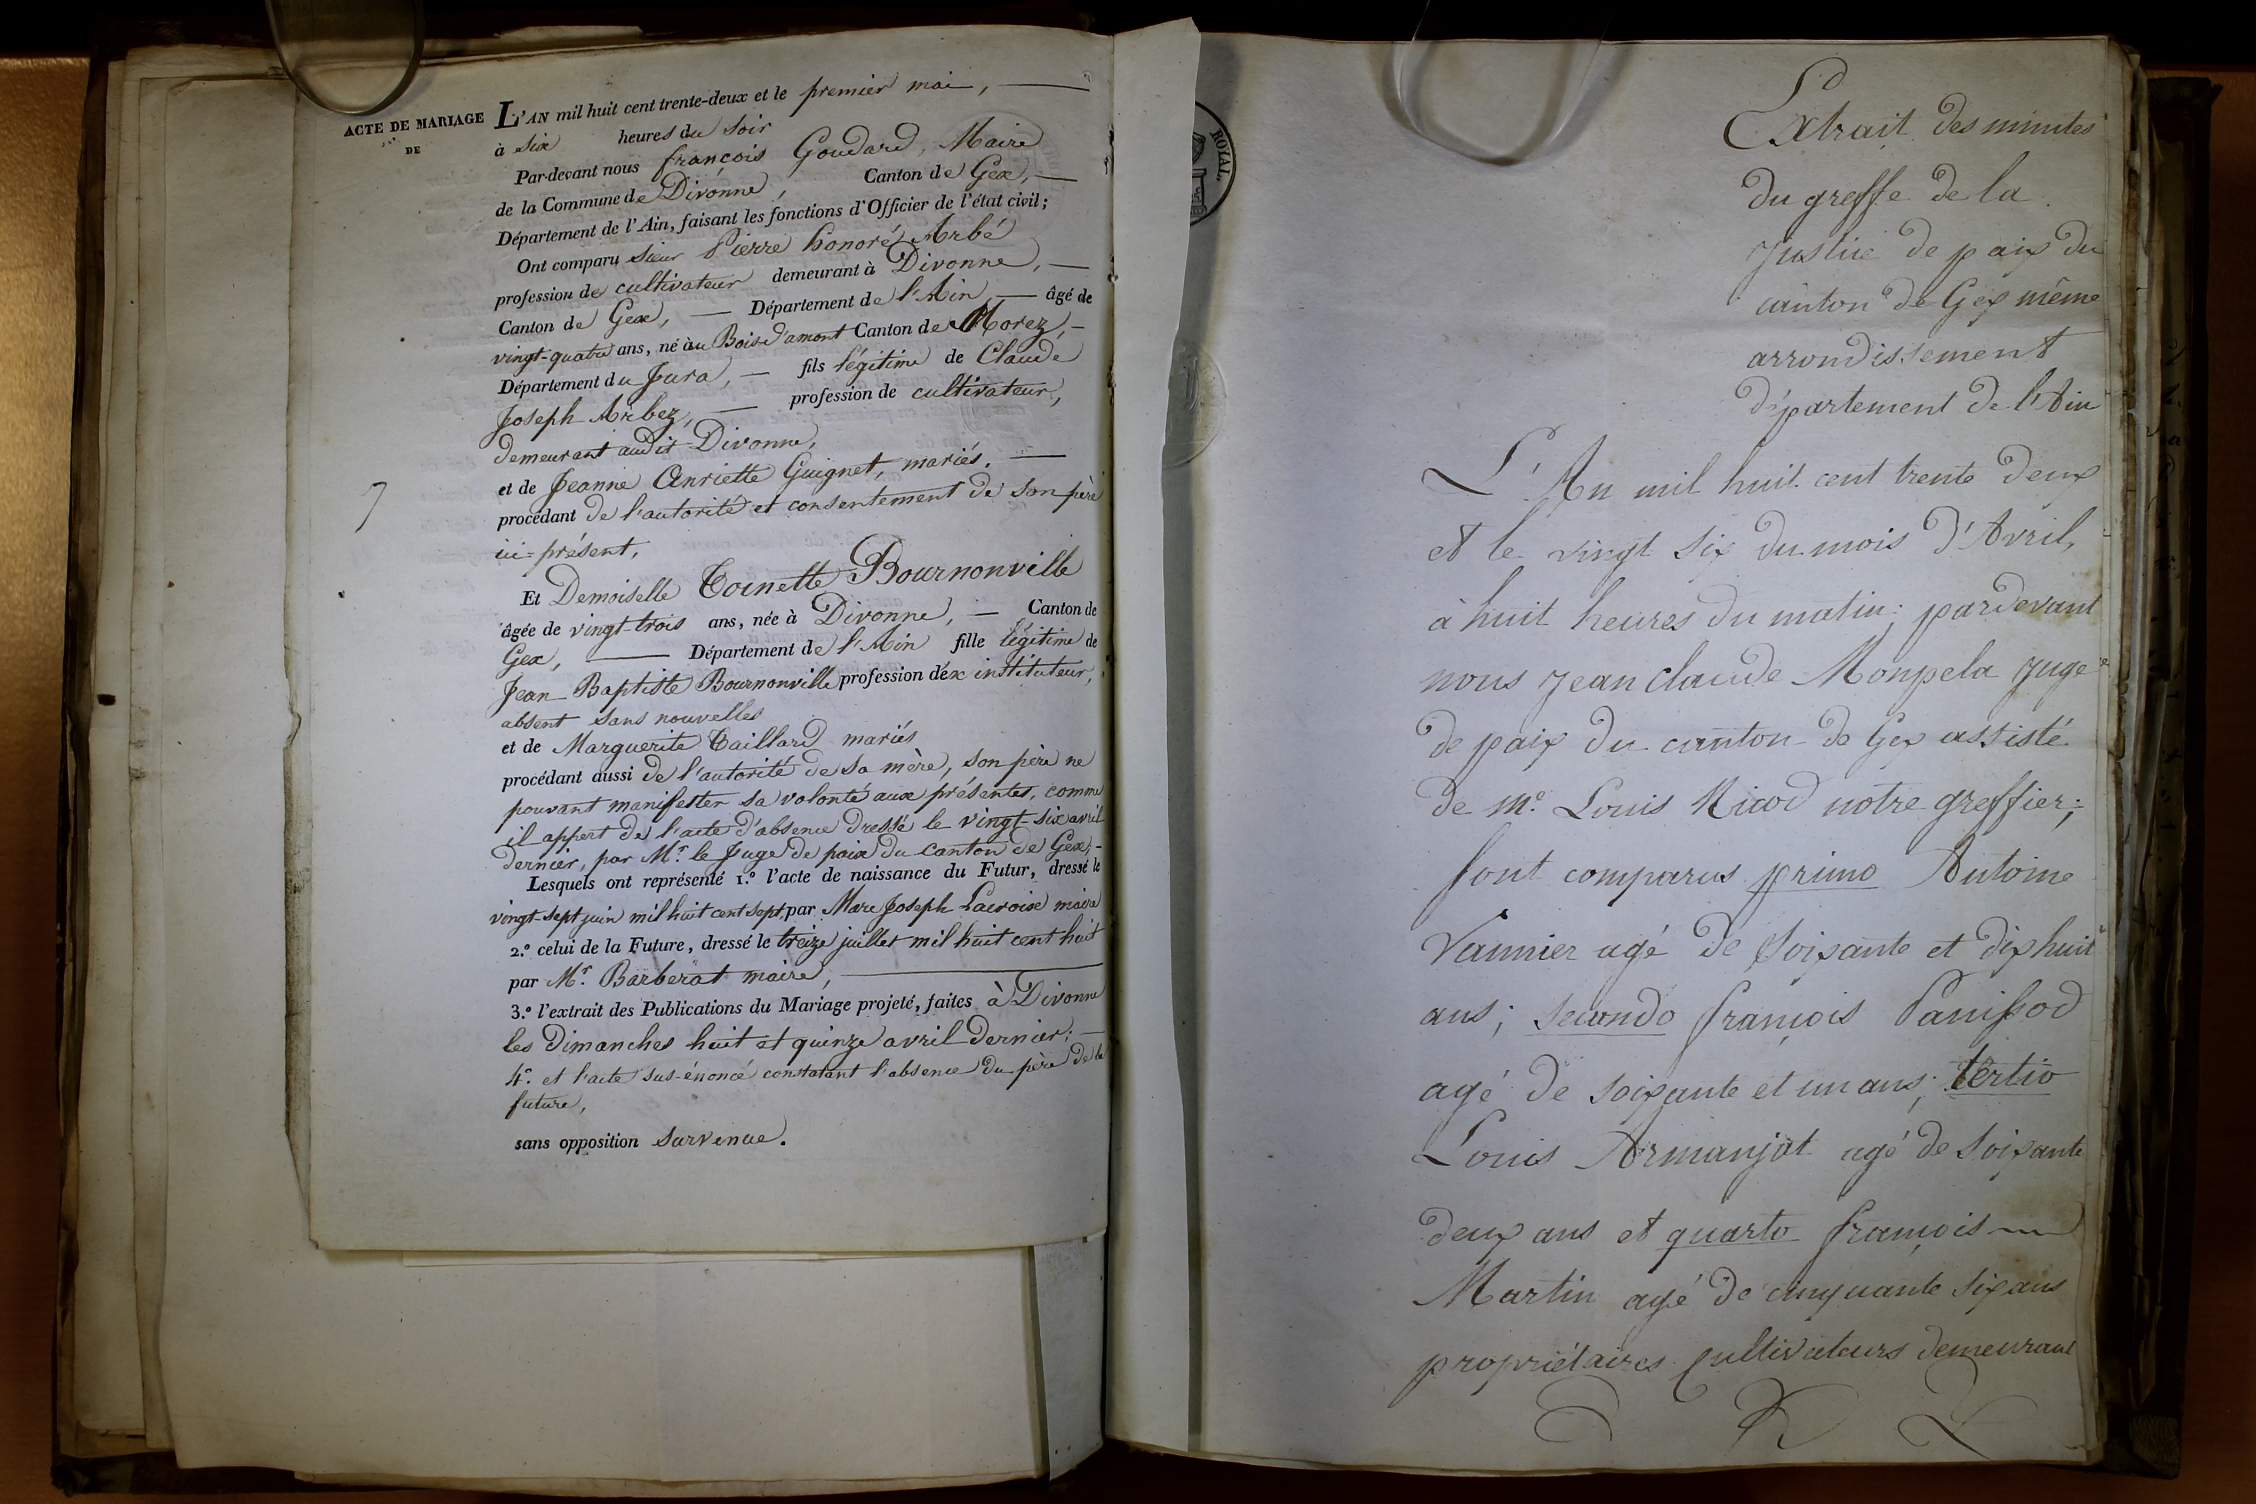 ACTE DE MARIAGE
DE
L'AN mil huit cent trente-deux et le premier mai,
à six heures du soir
Par-devant nous françois Goudard, Maire
de la Commune de Divonne, Canton de Gex,
Département de l'Ain, faisant les fonctions d'Officier de l'état civil;
Ont comparu sieur Pierre honoré Arbé
profession de cultivateur demeurant à Divonne,
Canton de Gex, Département de l'Ain âgé de
vingt-quatre ans, né au Bois d'amont Canton de Morez,
Département du Jura, fils légitime de Claude
Joseph Arbez, profession de cultivateur,
demeurant audit Divonne,
et de Jeanne Enriette Guignet, mariés.
procédant de l'autorité et consentement de son père
ici-présent,
7
Et Demoiselle Toinette Bournonville
âgée de vingt-trois ans, née à Divonne, Canton de
Gex, Département de l'Ain fille légitime de
Jean Baptiste Bournonville profession d'éx instituteur,
absent sans nouvelles
et de Marguerite Taillard mariés
procédant aussi de l'autorité de sa mère, son père ne
pouvant manifester sa volonté aux présentes, comme
il appert de l'acte d'absence dressé le vingt-six avril
dernier, par Mr. le Juge de paix du canton de Gex,
Lesquels ont représenté 1.º l'acte de naissance du Futur, dressé le
vingt-sept juin mil huit cent sept, par Marc Joseph Lacroix maire
2.º celui de la Future, dressé le treize juillet mil huit cent huit
par Mr. Barberat maire,
3.º l'extrait des Publications du Mariage projeté, faites à Divonne
les Dimanches huit et quinze avril dernier;
4.º et l'acte sus-énoncé constatant l'absence du père de la
future,
sans opposition survenue.
ROYAL
Extrait des minutes
du greffe de la
justice de paix du
canton de Gex même
arrondissement
département de l'Ain
L'An mil huit cent trente deux
et le vingt six du mois d'Avril,
à huit heures du matin; pardevant
nous jean claude Monpela juge
de paix du canton de Gex assisté
de Me. Louis Nicod notre greffier;
sont comparus primo Antoine
Vannier agé de soixante et dixhuit
ans; secundo françois Panissod
agé de soixante et un ans; tertio
Louis Armanjat agé de soixante
deux ans et quarto françois
Martin agé de cinquante six ans
propriétaires cultivateurs demeurant